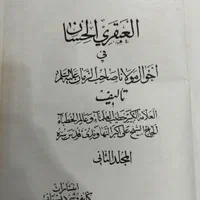 العبقري الحسان
في
أحوال مولانا صاحب الزمان عليه السلام
تأليف
العلامة الكبير خطيب العلماء وعالم الخطباء
الحاج الشيخ علي أكبر النهاوندي قدس سره
المجلد الثاني
انتشارات